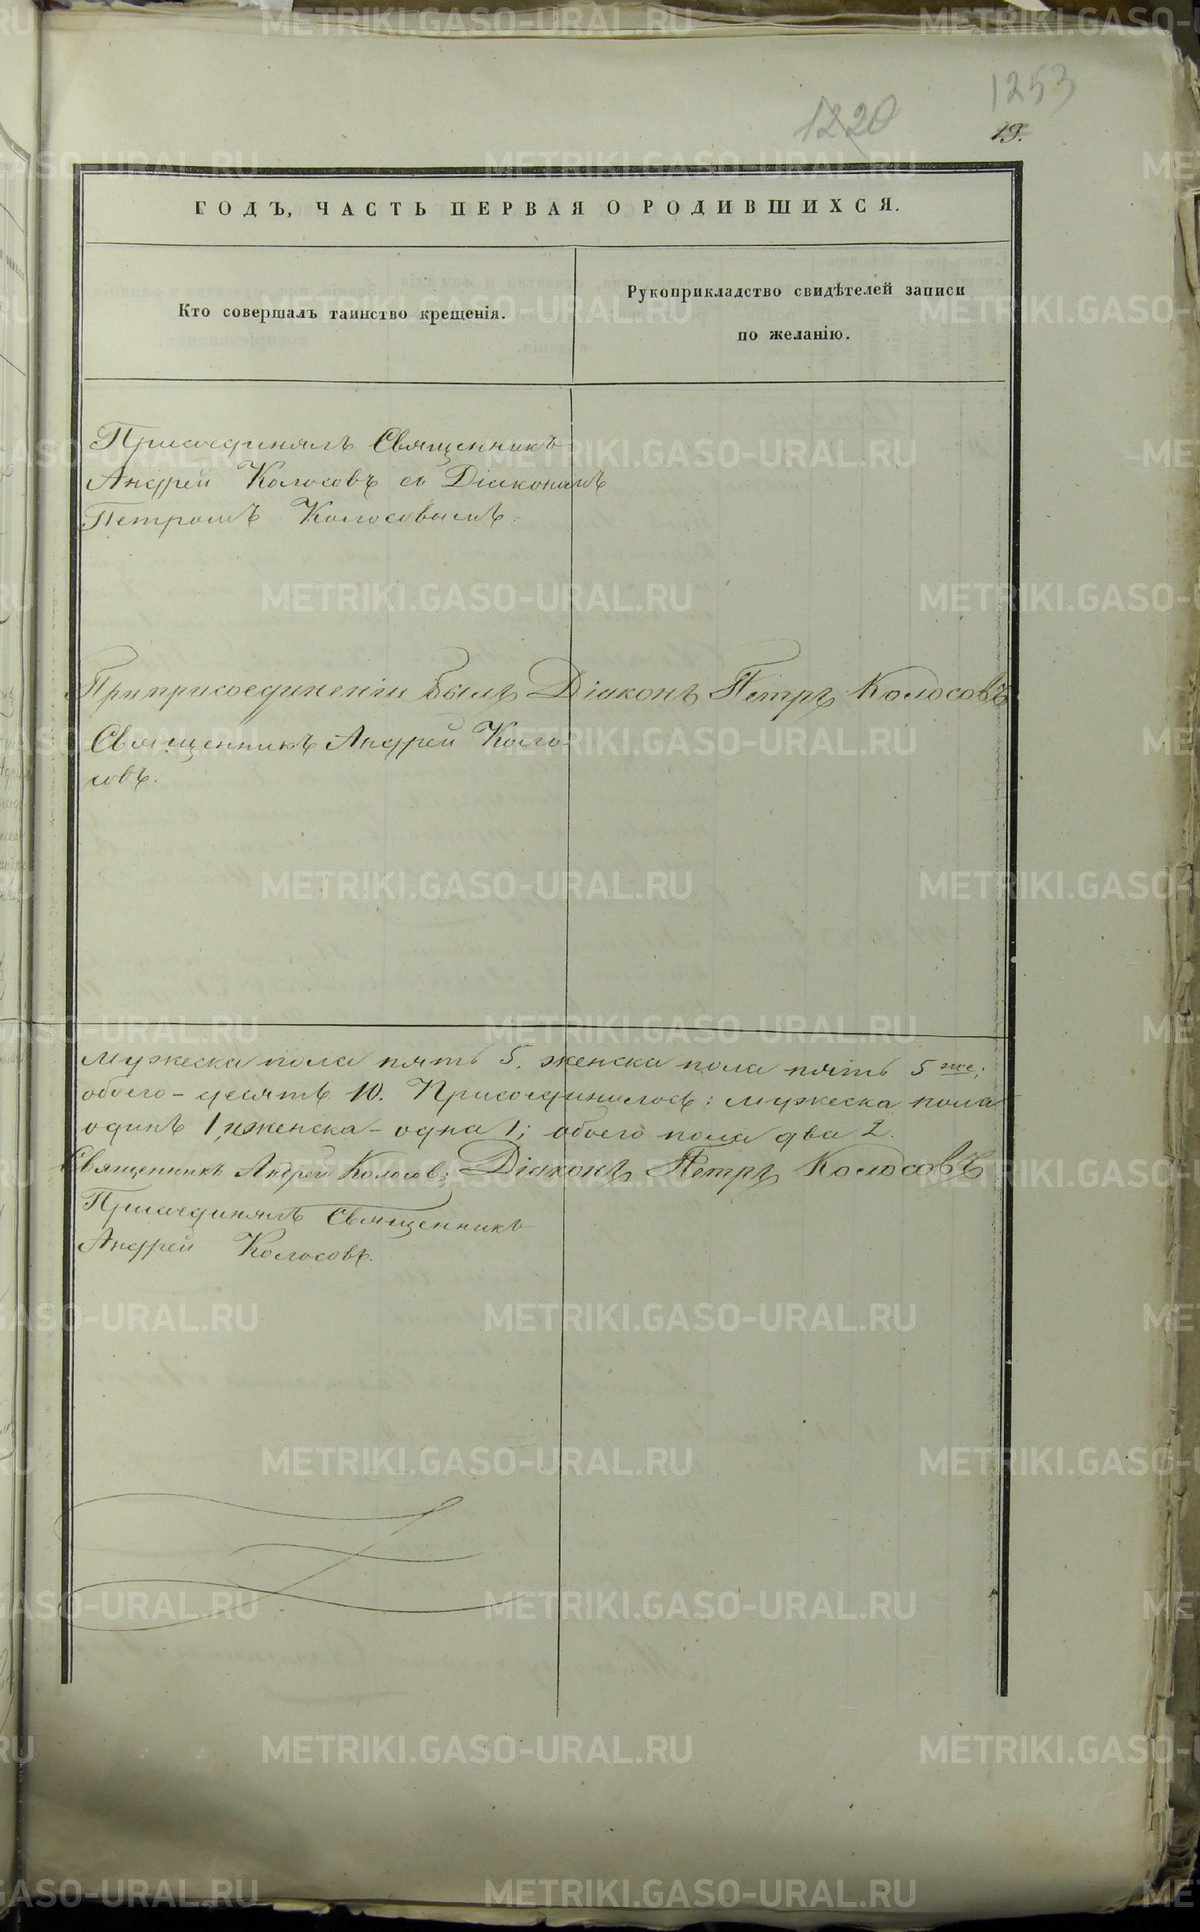 1253
1220
19.
ГОДЪ, ЧАСТЬ ПЕРВАЯ О РОДИВШИХСЯ.
Кто совершалъ таинство крещенія.
Рукоприкладство свидѣтелей записи
по желанію.
Присоединялъ Священникъ
Андрей Колосовъ съ Діакономъ
Петромъ Колосовымъ.
При присоединеніи былъ Діаконъ Петръ Колосовъ
Священникъ Андрей Коло-
совъ.
Мужеска пола пять 5. женска пола пять 5
обоего - десять 10. Присоединилось: мужеска пола
одинъ 1, женска - одна 1; обоего пола два 2.
Священникъ Андрей Колосовъ; Діаконъ Петръ Колосовъ
Присоединялъ Священникъ
Андрей Колосовъ.
METRIKI.GASO-URAL.RU